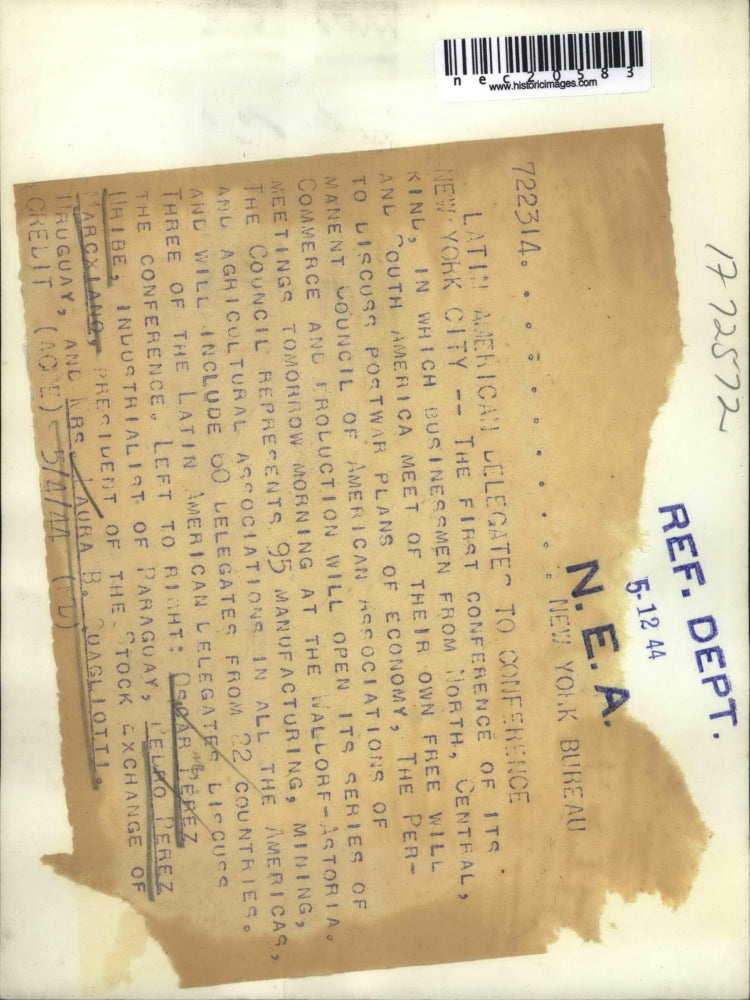 nec20583
www.historicimages.com
1772572
REF. DEPT.
5-12 44
N.E.A.
722314. . . . . . . . . . . . NEW YORK BUREAU
LATIN AMERICAN DELEGATES TO CONFERENCE
NEW YORK CITY -- THE FIRST CONFERENCE OF ITS
KIND, IN WHICH BUSINESSMEN FROM NORTH, CENTRAL,
AND SOUTH AMERICA MEET OF THEIR OWN FREE WILL
TO DISCUSS POSTWAR PLANS OF ECONOMY, THE PER-
MANENT COUNCIL OF AMERICAN ASSOCIATIONS OF
COMMERCE AND PRODUCTION WILL OPEN ITS SERIES OF
MEETINGS TOMORROW MORNING AT THE WALDORF-ASTORIA.
THE COUNCIL REPRESENTS 95 MANUFACTURING, MINING,
AND AGRICULTURAL ASSOCIATIONS IN ALL THE AMERICAS,
AND WILL INCLUDE 60 DELEGATES FROM 22 COUNTRIES.
THREE OF THE LATIN AMERICAN DELEGATES DISCUSS
THE CONFERENCE. LEFT TO RIGHT: OSCAR PEREZ
URIBE, INDUSTRIALIST OF PARAGUAY, PEREZ
MARCXIANO, PRESIDENT OF THE STOCK EXCHANGE OF
URUGUAY, AND MRS. LAURA B. QUAGLIOTTI.
CREDIT (ACME) 5/4/44